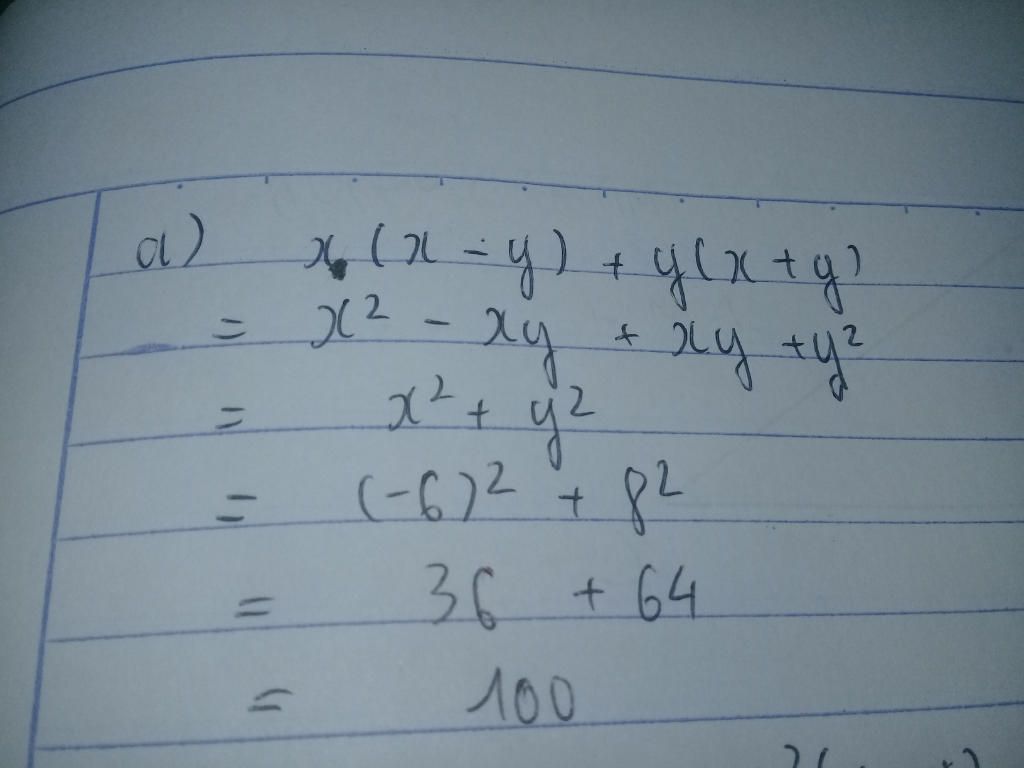 a) x(x - y) + y(x + y)
= x² - xy + xy + y²
= x² + y²
= (-6)² + 8²
= 36 + 64
= 100